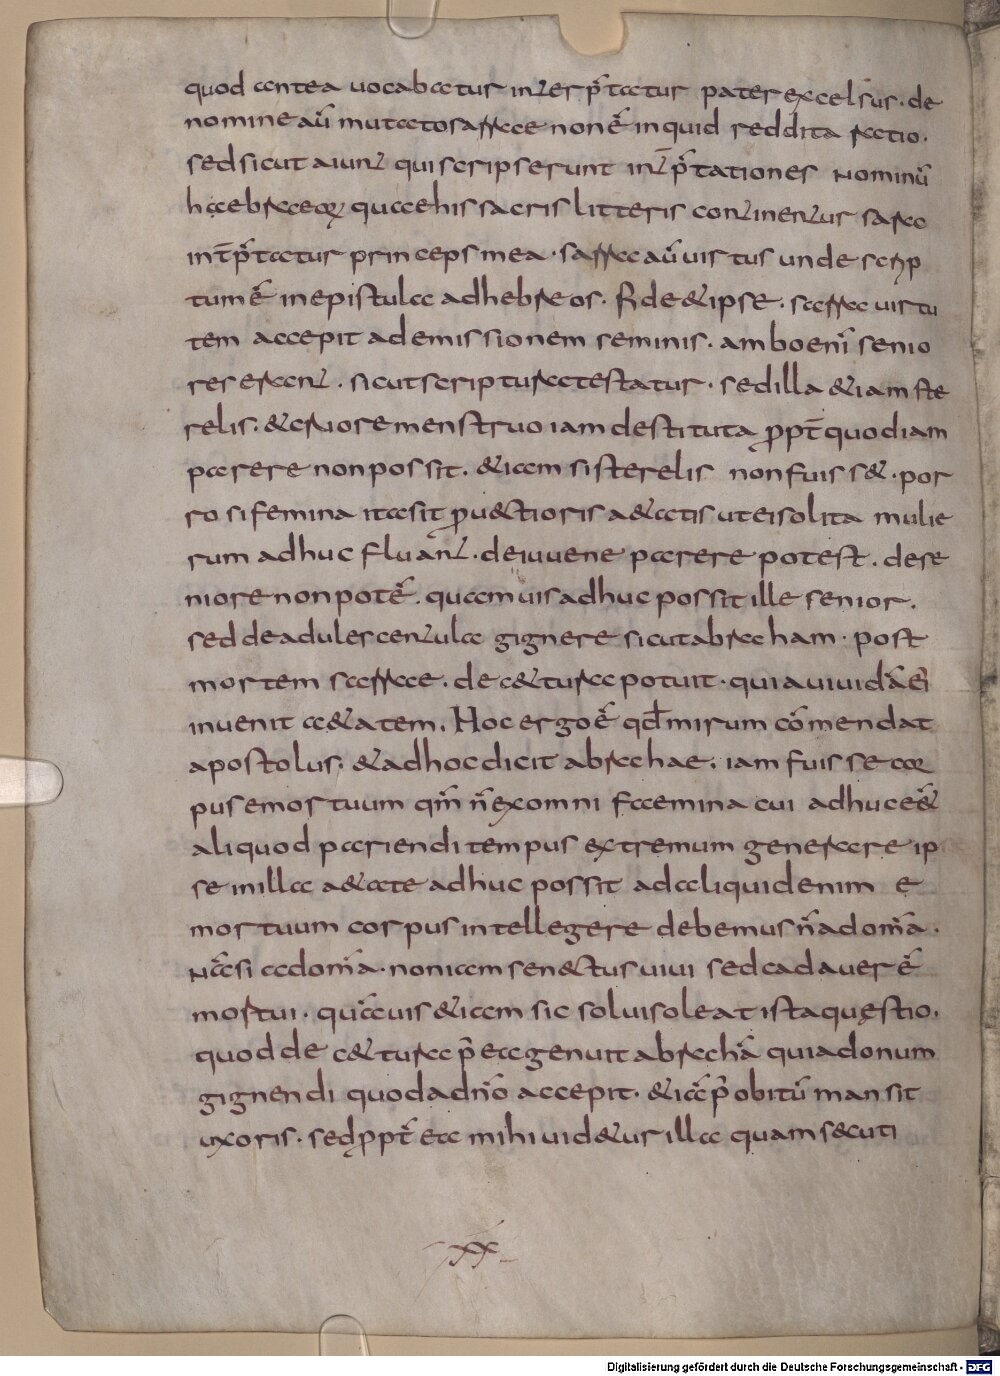 quod antea uocabatur interp̄tatur pater excelsus · de
nomine aū mutato sarrae non ē inquid reddita ratio ·
sed sicut aiunt qui scripserunt int̄p̄tationes nominū
haebraeoꝝ quae his sacris litteris continentur sara
int̄p̄tatur princeps mea · sarra aū uirtus unde scrip
tum ē in epistula ad hebreos · Fide & ipse · sarra uirtu
tem accepit ad emissionem seminis · ambo enī senio
res erant · sicut scriptura testatur · sed illa &iam ste
relis · & cruore menstruo iam destituta ꝓpt̄ quod iam
parere non possit · &iam si sterelis non fuiss& · por
ro si femina ita sit ꝓuectioris a&atis ut ei solita mulie
rum adhuc fluant · de iuuene parere potest · de se
niore non potē · quamuis adhuc possit ille senior ·
sed de adulescentula gignere sicut abraham · post
mortem sarrae · de c&tura potuit · quia uiuidā eī
inuenit a&atem · Hoc ergo ē qd̄ mirum cōmendat
apostolus · & ad hoc dicit abrahae · iam fuisse cor
pus emortuum qm̄ n̄ ex omni faemina cui adhuc eēt
aliquod pariendi tempus extremum generare ip
se in illa a&ate adhuc possit ad aliquid enim e
mortuum corpus intellegere debemus n̄ ad om̄a ·
Nā si ad om̄a · non iam senectus uiui sed cadauer ē
mortui · quāuis &iam sic solui soleat ista quęstio ·
quod de c&tura p̄ ea genuit abrahā quia donum
gignendi quod a dn̄o accepit · &iā p̄ obitū mansit
uxoris · sed ꝓpt̄ ea mihi uid&ur illa quam secuti
xx
Digitalisierung gefördert durch die Deutsche Forschungsgemeinschaft - DFG